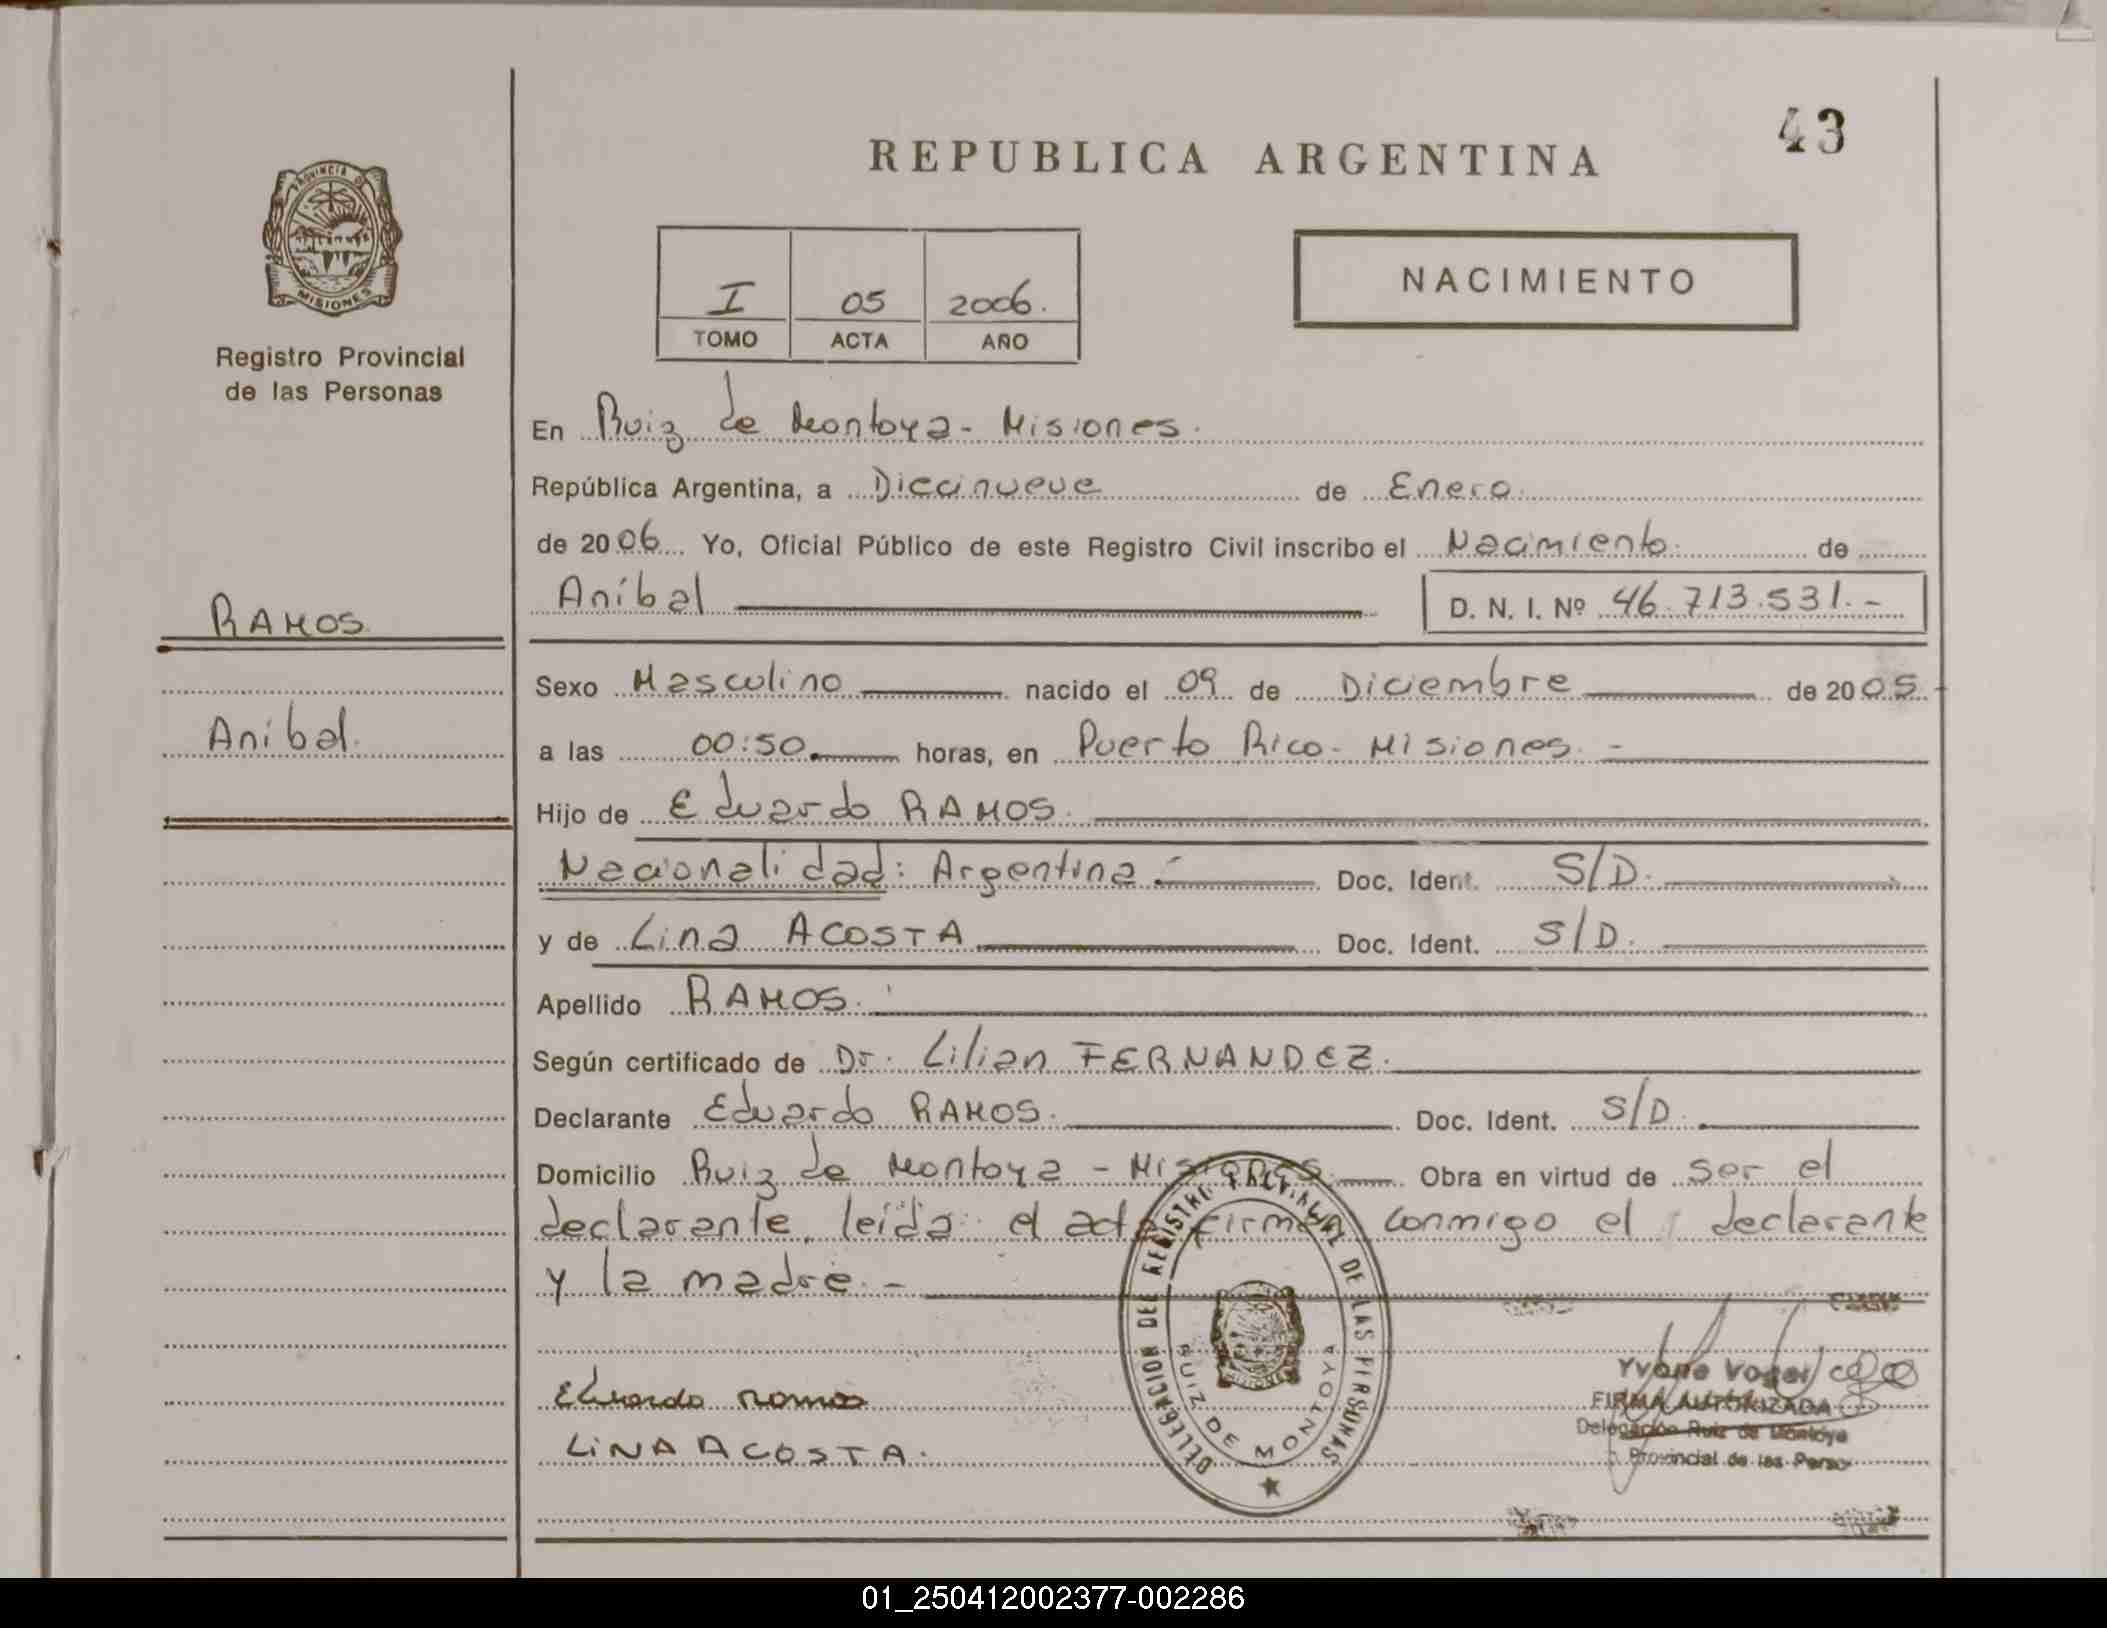 43
REPUBLICA ARGENTINA
PROVINCIA DE
MISIONES
Registro Provincial
de las Personas
I 05 2006.
TOMO ACTA AÑO
NACIMIENTO
En Ruiz de Montoya - Misiones.
República Argentina, a Diecinueve de Enero
de 2006 Yo, Oficial Público de este Registro Civil inscribo el Nacimiento de
Aníbal D. N. I. Nº 46.713.531.-
RAMOS
Aníbal.
Sexo Masculino nacido el 09 de Diciembre de 2005
a las 00:50 horas, en Puerto Rico - Misiones. -
Hijo de Eduardo RAMOS.
Nacionalidad: Argentina - Doc. Ident. S/D.
y de Lina ACOSTA Doc. Ident. S/D.
Apellido RAMOS.
Según certificado de Dr. Lilian FERNANDEZ.
Declarante Eduardo RAMOS. Doc. Ident. S/D.
Domicilio Ruiz de Montoya - Misiones. Obra en virtud de ser el
declarante, leída el acta firman conmigo el declarante
y la madre. -
DELEGACION DEL REGISTRO PROVINCIAL DE LAS PERSONAS
RUIZ DE MONTOYA
MISIONES
Eduardo Ramos
LiNA ACOSTA.
Yvone Vogel
FIRMA AUTORIZADA
Delegación Ruiz de Montoya
Provincial de las Perso
01_250412002377-002286